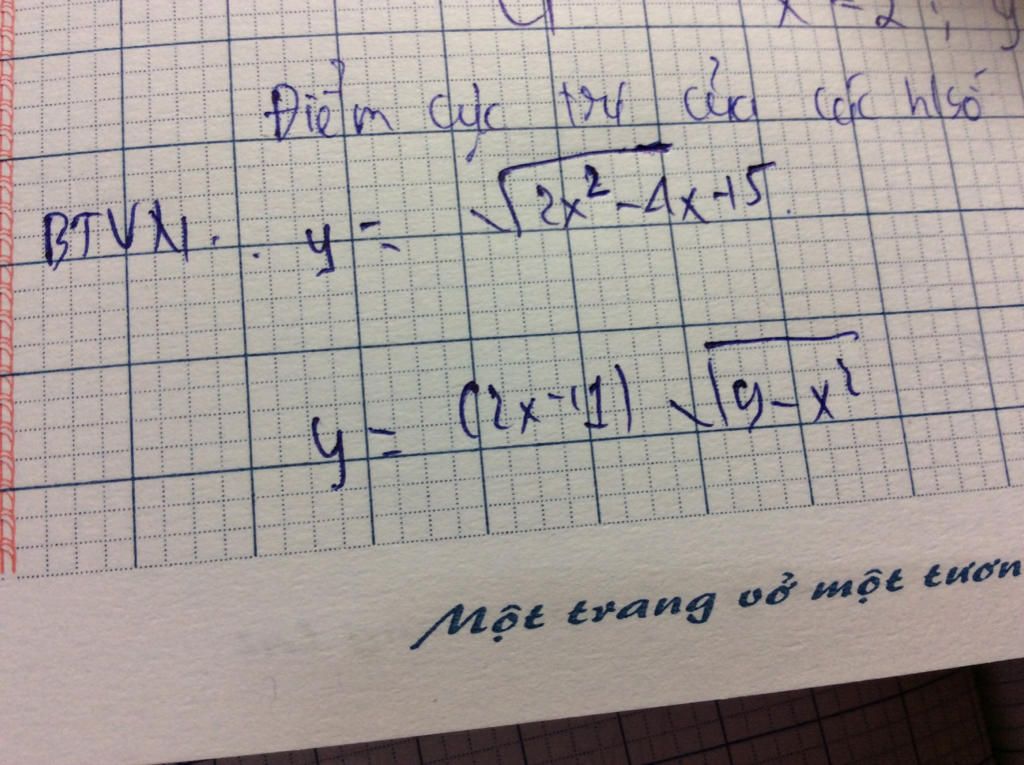 x = 2 ; y
Điểm cực trị của các h/số
BTVN. y = √2x² - 4x + 5.
y = (2x - 1) √9 - x²
Một trang vở một tươn